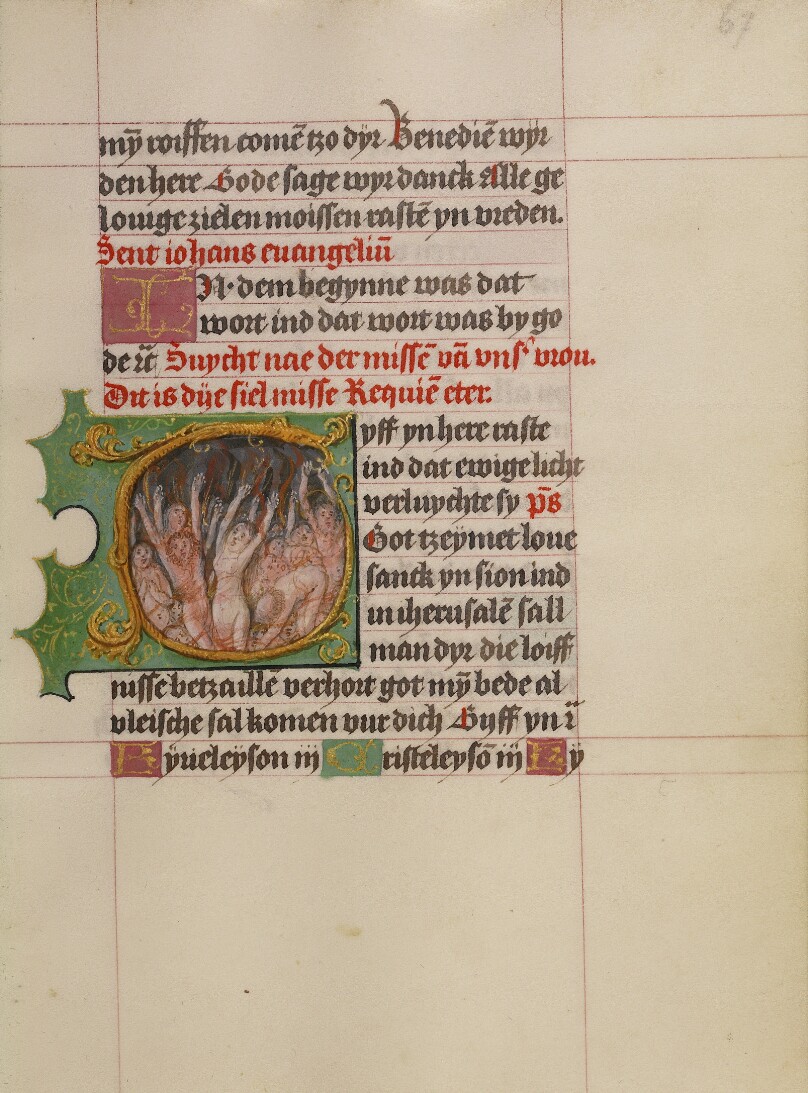 67
mȳ roiffen comē tzo dyr Benediē wyr
den here Gode sage wyr danck Alle ge
louige zielen moissen rastē yn vreden.
Sent iohans euangeliū
IN dem begynne was dat
wort ind dat wort was by go
de rc̄ Suycht nae der missē vā vnsˢ vrou.
Dit is dije siel misse Requiē eter.
Gyff yn here raste
ind dat ewige licht
verluychte sy p̄s
Got tzeymet loue
sanck yn sion ind
in iherusalē sall
man dyr die loiff
nisse betzaillē verhort got mȳ bede al
vleische sal komen vur dich Gyff yn ī
Kyrieleyson iij Cristeleysō iij Ky